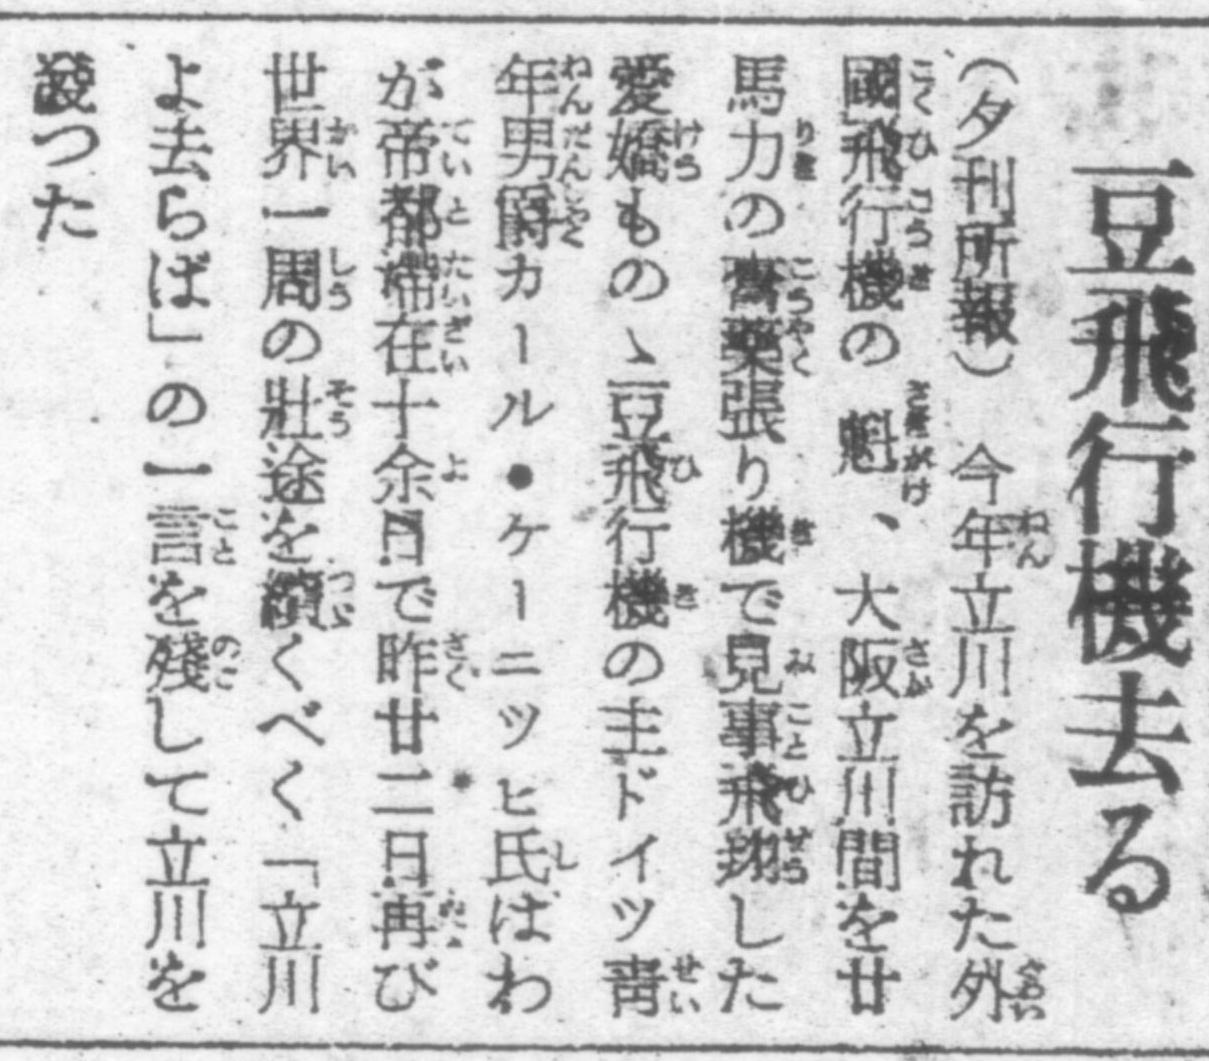 豆飛行機去る
（夕刊所報）今年立川を訪れた外
國飛行機の魁、大阪立川間を廿
馬力の膏藥張り機で見事飛翔した
愛嬌ものゝ豆飛行機の主ドイツ靑
年男爵カール・ケーニッヒ氏はわ
が帝都滯在十余日で昨廿二日再び
世界一周の壯途を續くべく「立川
よ去らば」の一言を殘して立川を
發つた